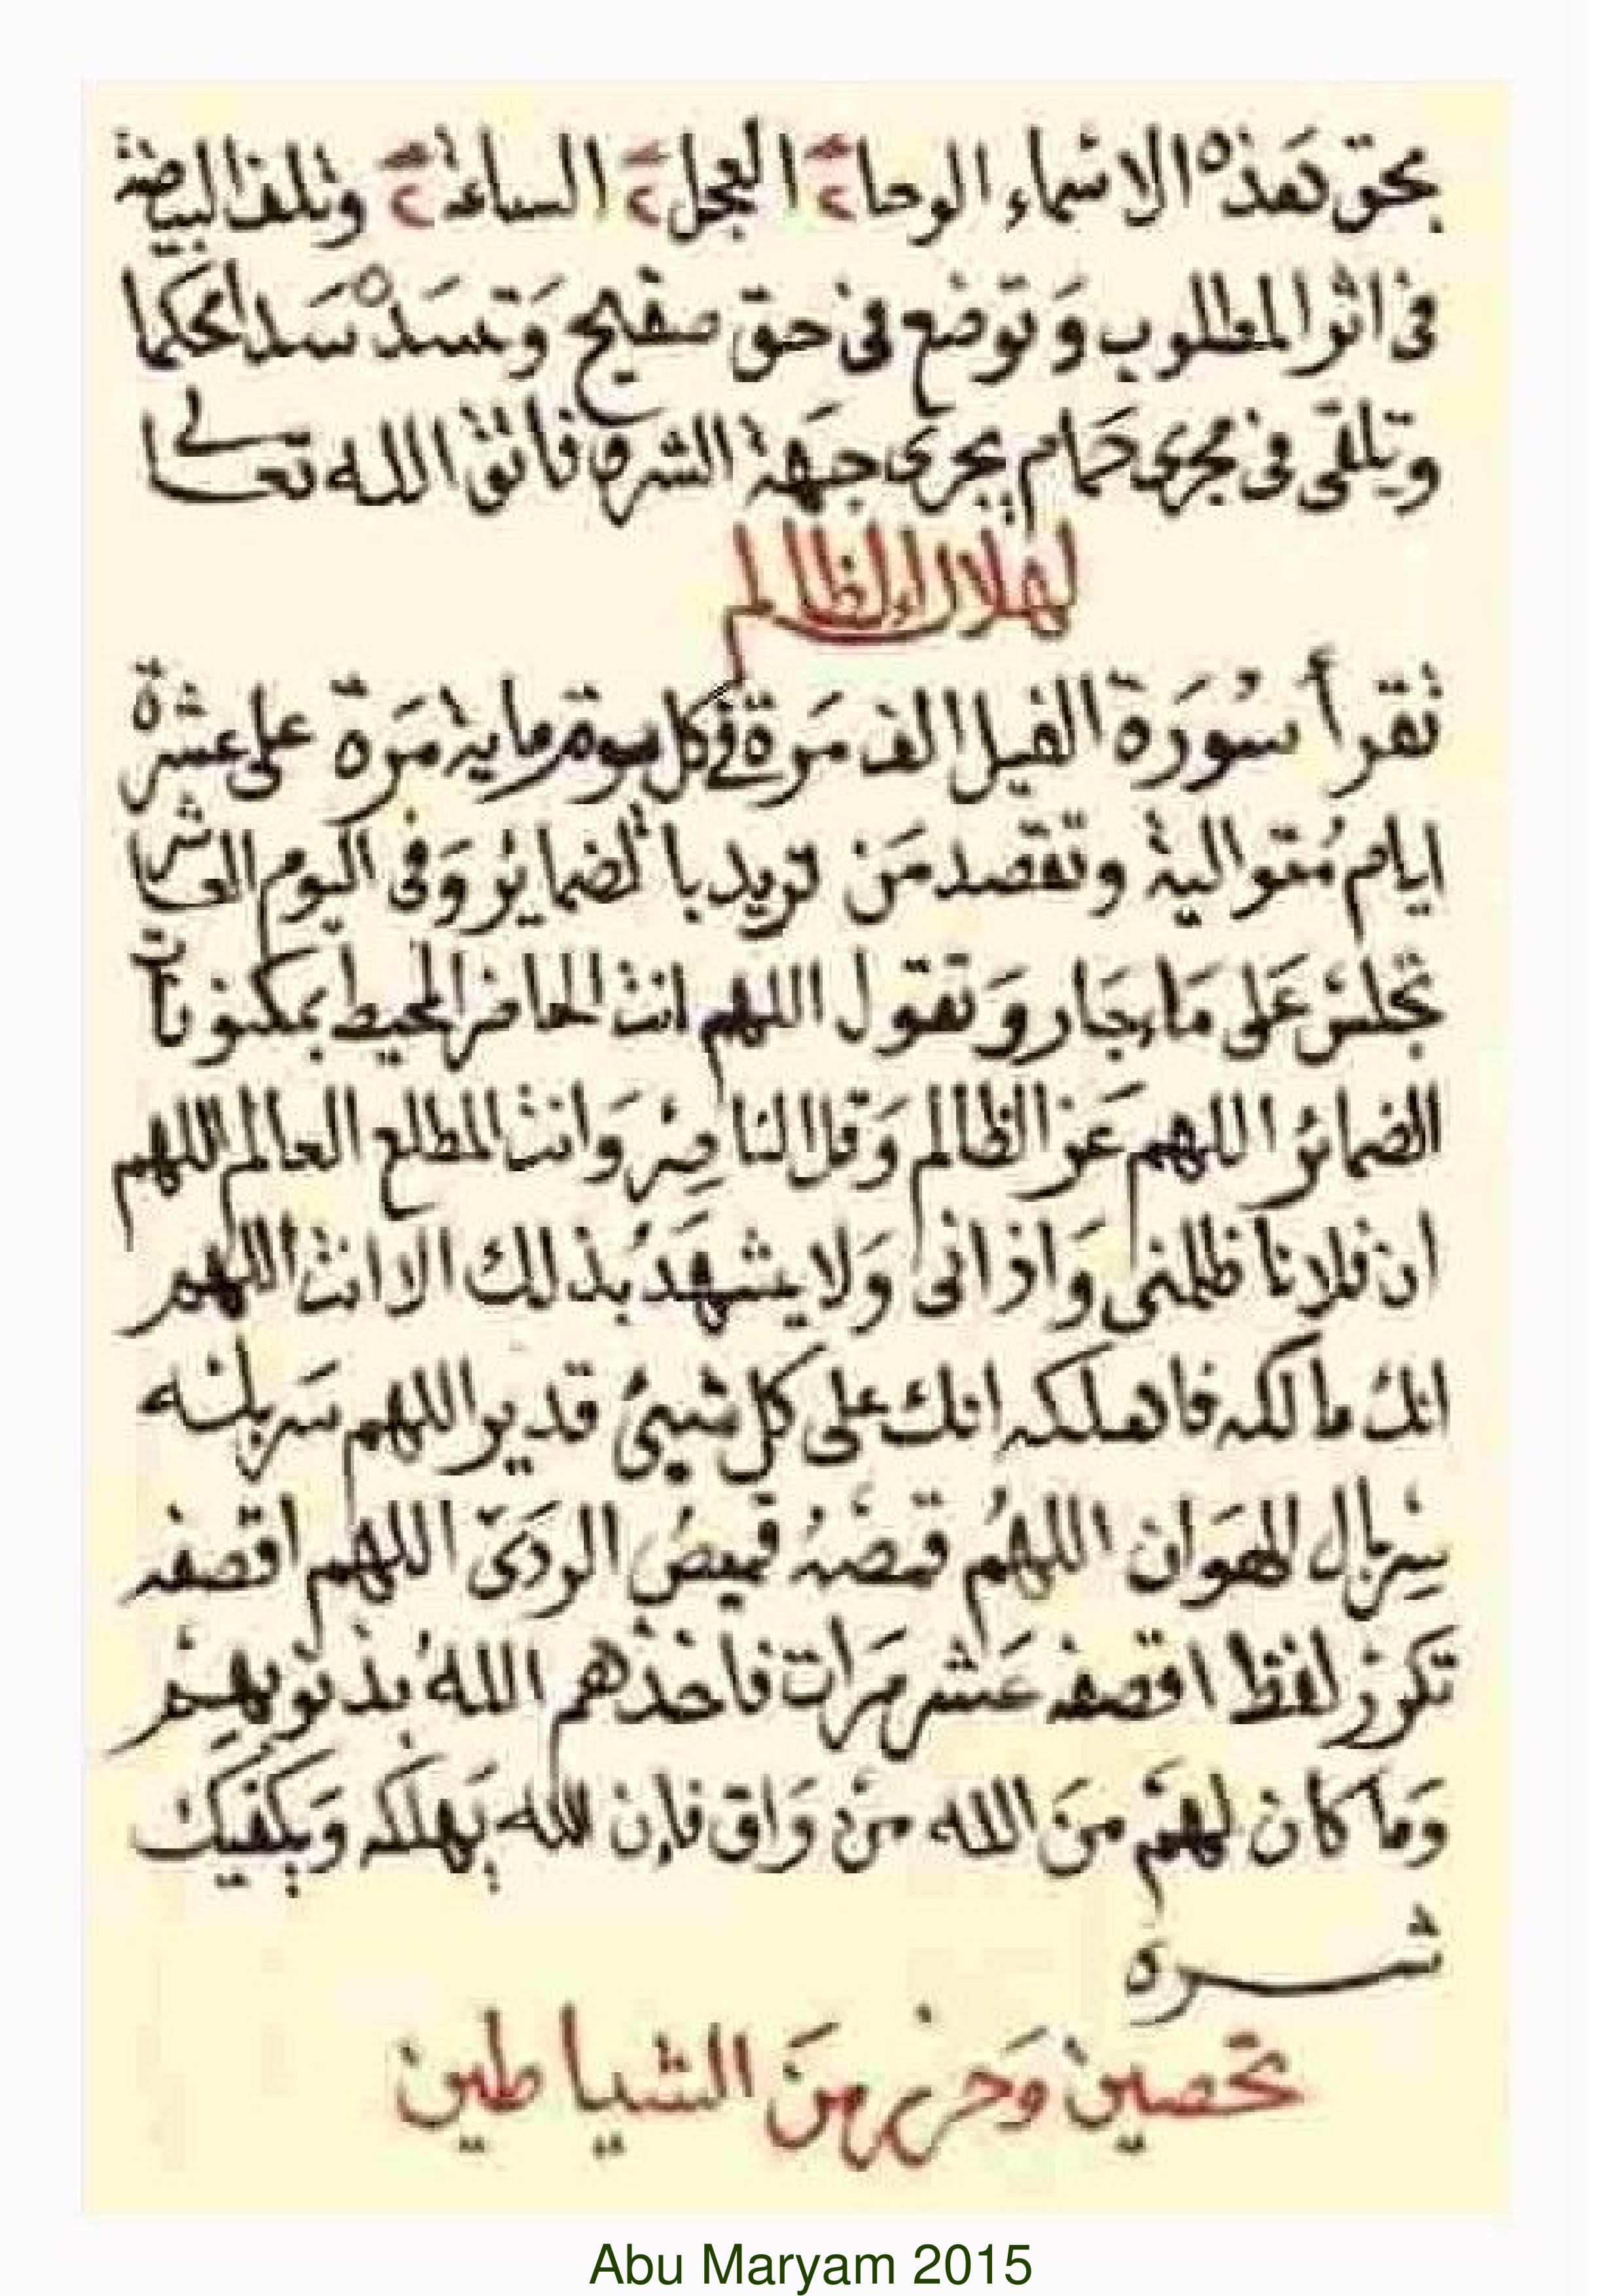 بحق هذه الاسماء الوحا ٢ العجل ٢ الساعة ٢ وتلف البيضة
فى اثر المطلوب وَتوضع فى حق صفيح وَتسَدْ سَدا محكما
وتلقى فى مجرى حَمام يجرى جهَة الشرق فانة الله تعالى
لهلاك الظالم
تقرأ سُورَة الفيل الف مَرة فى كل يوم مايه مَرة على عشرة
ايام مُتوالية وتقصد مَن تريد بالضمائر وَفى اليوم العاشر
تجلسْ عَلى مَاء جَار وَتقول اللهم انت الحاضر المحيط بمكنونات
الضمائر اللهم عَز الظالم وَقل الناصِرْ وَانت المطلع العالم اللهم
ان فلانا ظلمنى وَاذانى وَلا يشهَدُ بذلك الا انت اللهم
انك مالكه فاهلكه انك على كل شيئ قدير اللهم سَربلْه
سِربال الهوَان اللهُم قمصْهُ قميصُ الردَىّ اللهم اقصفه
تكررْ لفظ اقصفه عَشر مَرات فاخذهم اللهُ بذنوبهِمْ
وَما كان لهُم منَ الله منْ وَاق فإن الله يَهلكه وَيكفيك
شره
تحصينْ وَحرز منَ الشياطين
Abu Maryam 2015